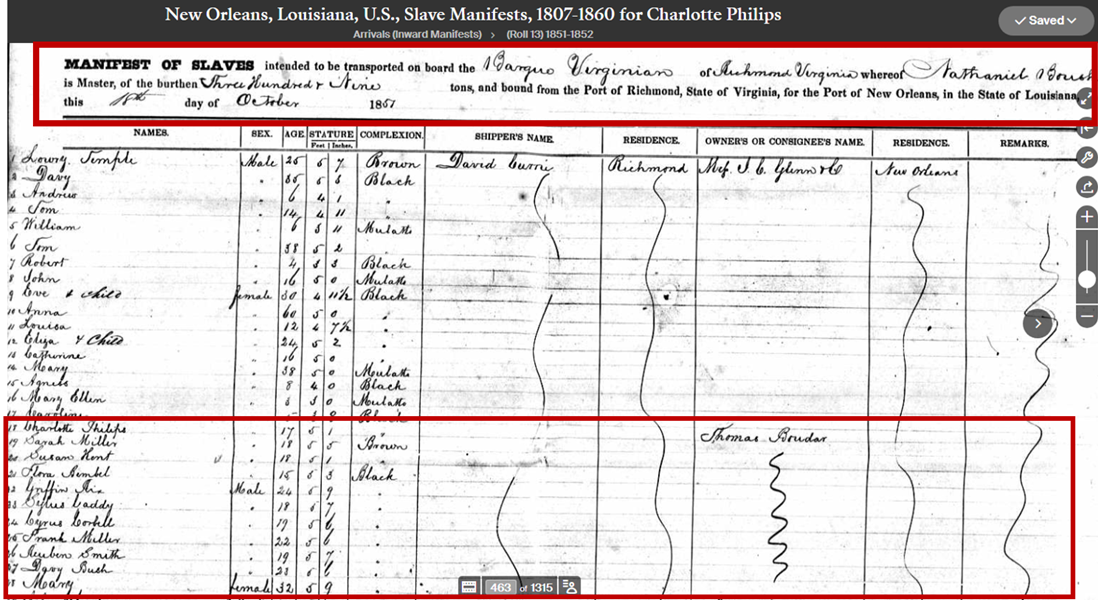 New Orleans, Louisiana, U.S., Slave Manifests, 1807-1860 for Charlotte Philips
Saved
Arrivals (Inward Manifests) > (Roll 13) 1851-1852
MANIFEST OF SLAVES intended to be transported on board the Barque Virginian of Richmond Virginia whereof Nathaniel
is Master, of the burthen Three Hundred & Nine tons, and bound from the Port of Richmond, State of Virginia, for the Port of New Orleans, in the State of Louisiana,
this day of October 1851
NAMES. SEX. AGE STATURE COMPLEXION. SHIPPER'S NAME. RESIDENCE. OWNER'S OR CONSIGNEE'S NAME. RESIDENCE. REMARKS.
Feet Inches.
1 Lowry Temple Male 25 5 7 Brown David Currie Richmond New Orleans
Davy 5 Black
3 Andrew 6 4 1
4 Tom 14 4 11
5 William 6 3 11 Mulatto
6 Tom 38 5 2
7 Robert 4 3 3 Black
8 John 16 5 0 Mulatto
9 & Child female 30 4 11½ Black
10 Anna 60 5 0
11 Louisa 12 4 7½
12 Eliza & Child 24 5 2
13 Catherine 16 5 0
14 Mary 38 5 0 Mulatto
15 Agness 8 4 0 Black
16 Mary Ellen 3 0 Mulatto
17 Caroline Black
18 Charlotte Philips 17 5 1 Thomas Boudar
19 Sarah Miller 18 5 5 Brown
20 Susan Hent 18 5
21 Flora 15 5 3 Black
22 Griffin Male 24 5 9
23 Gaddy 18 5 7
24 Cyrus Corbell 19 5 6
25 Frank Miller 22 5 6
26 Reuben Smith 19 5 7
27 Davy Bush 23 5 6
Mary female 32 5 9
463 of 1315